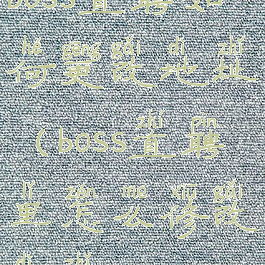 boss直聘如
hé gēng gǎi dì zhǐ
何更改地址
zhí pìn
(boss直聘
lǐ zěn me xiū gǎi
里怎么修改
dì zhǐ